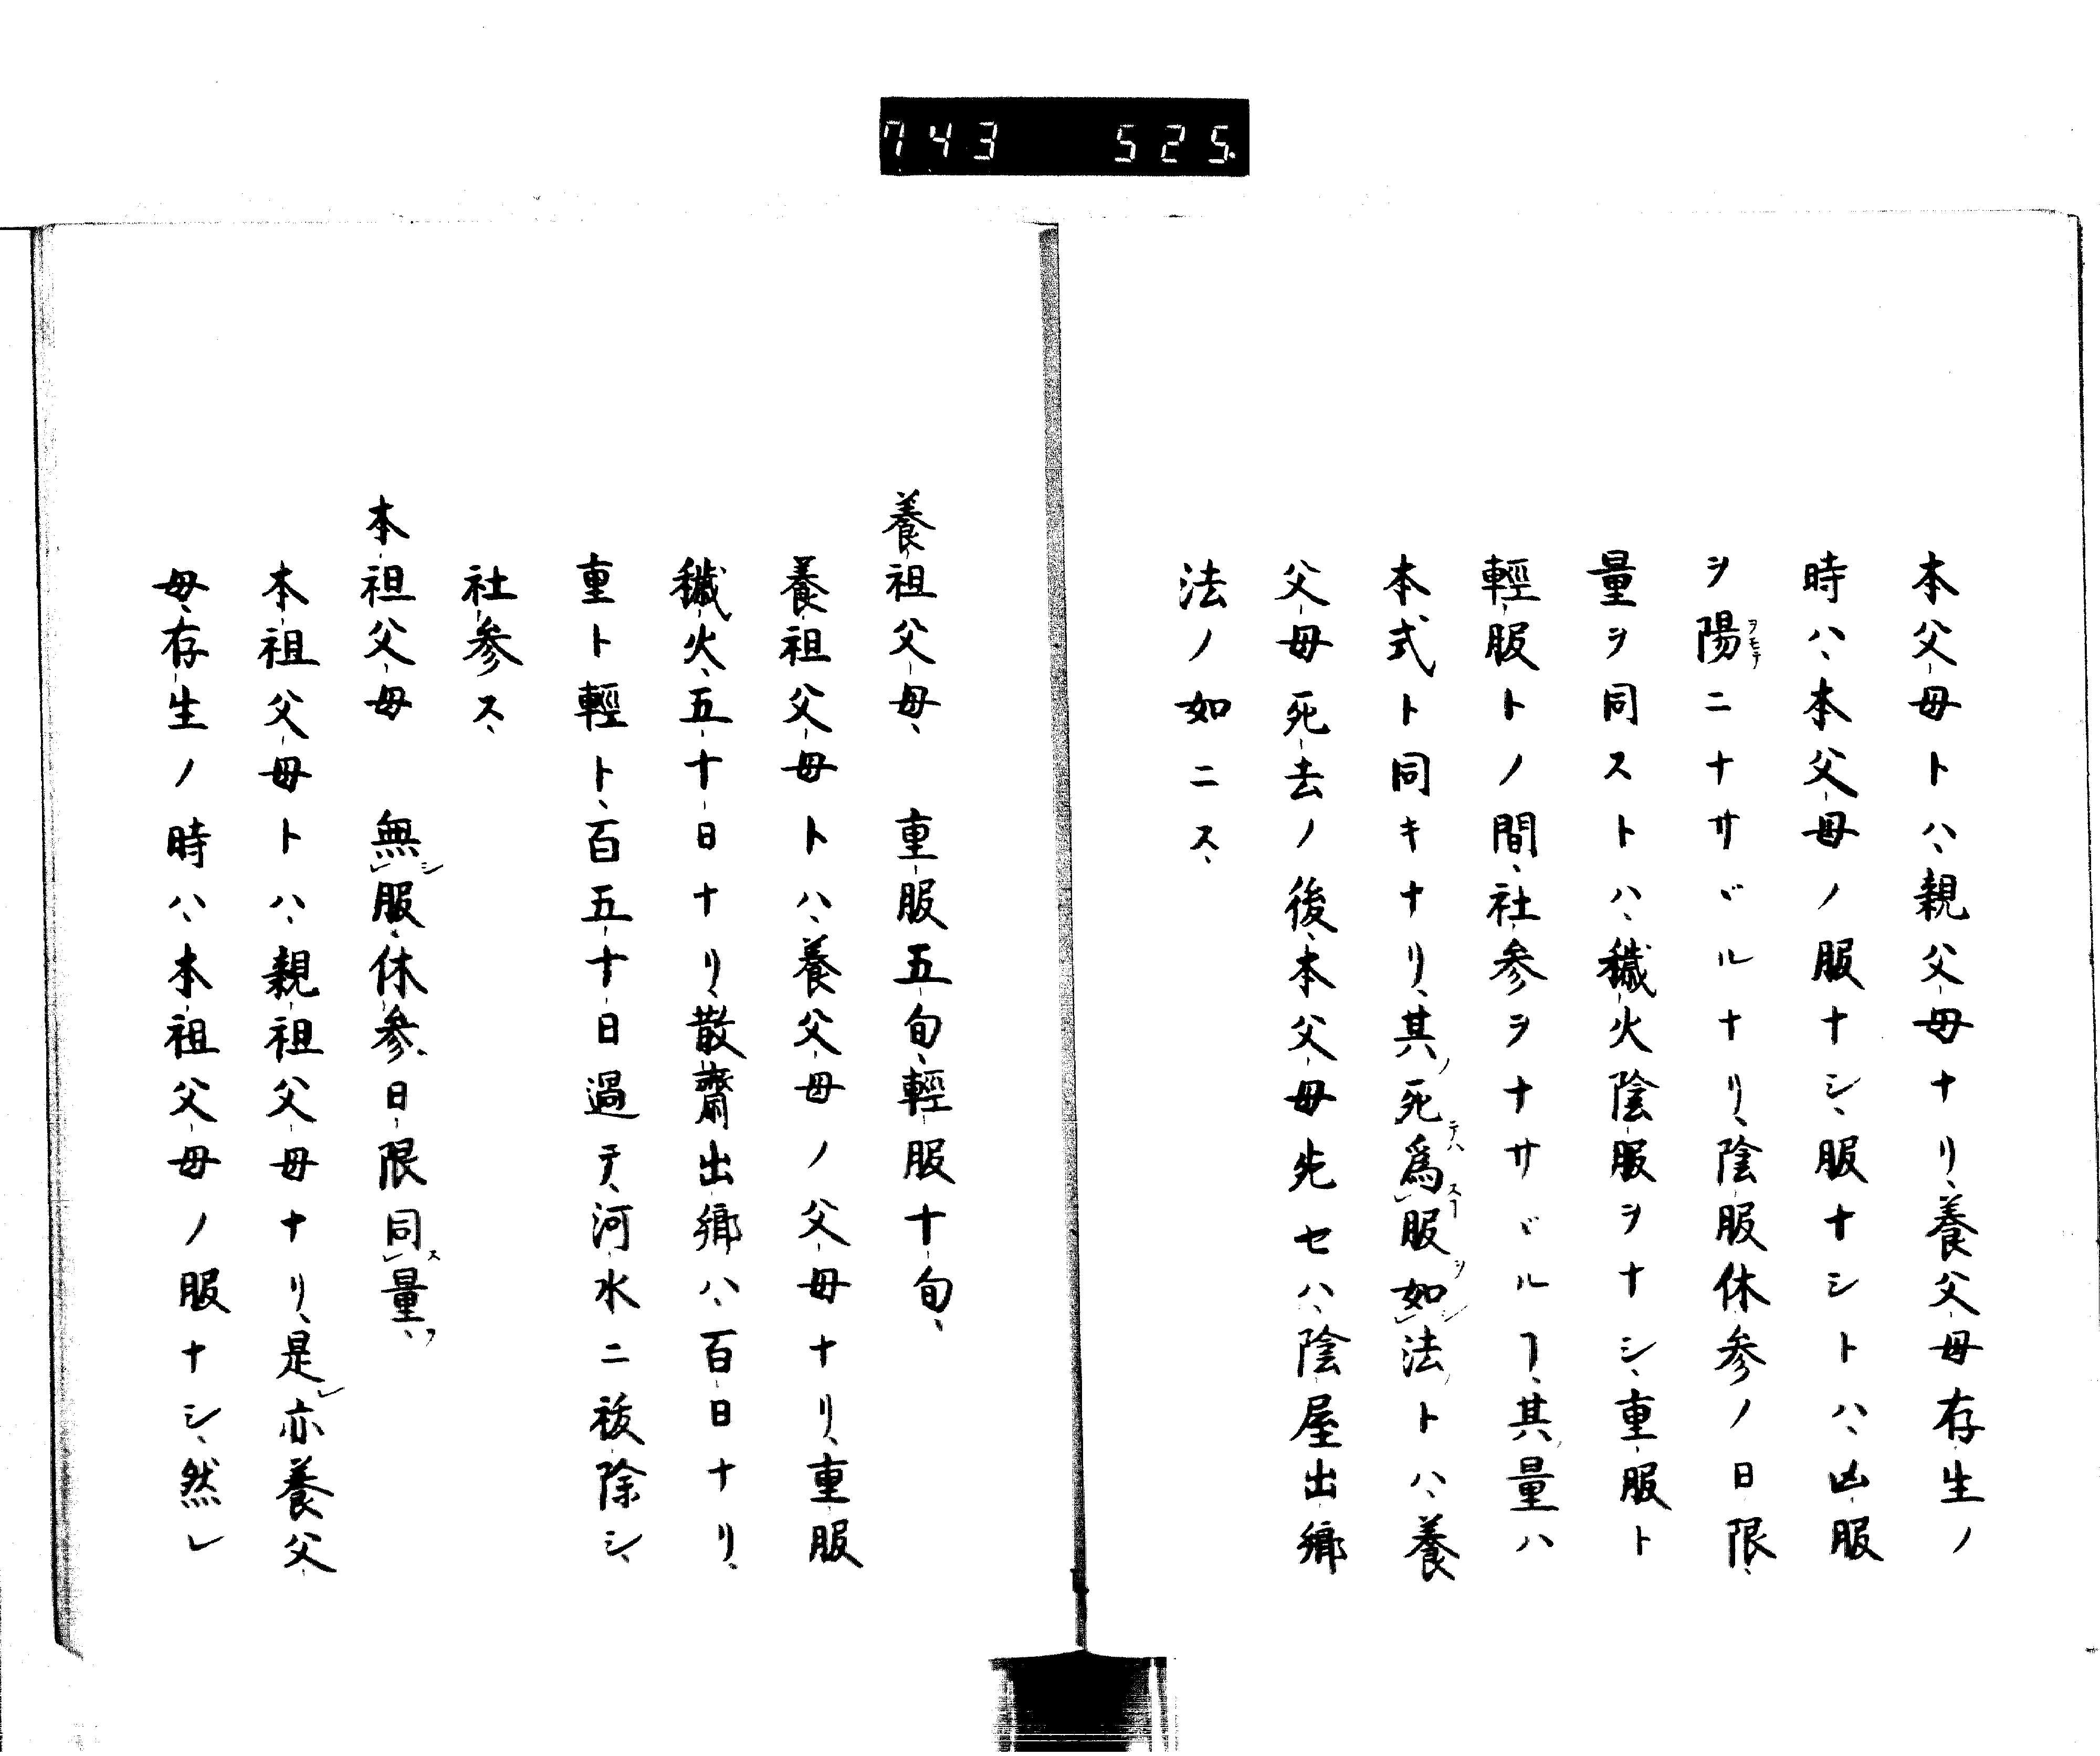 743 525
本父母トハ、親父母ナリ、養父母存生ノ
時ハ、本父母ノ服ナシ、服ナシトハ、凶服
ヲ陽ニナサヾルナリ、陰服休参ノ日限、
量ヲ同ストハ、穢火陰服ヲナシ、重服ト
輕服トノ間、社参ヲナサヾルヿ、其量ハ
本式ト同キナリ、其死爲服如法トハ、養
父母死去ノ後、本父母死セハ、陰屋出郷
法ノ如ニス、
養祖父母、　重服五旬、輕服十旬、
養祖父母トハ、養父母ノ父母ナリ、重服
穢火、五十日ナリ、散齋出郷ハ、百日ナリ、
重ト輕ト、百五十日過テ、河水ニ祓除シ、
社参ス、
本祖父母　無服、休参、日限同量、
本祖父母トハ、親祖父母ナリ、是亦養父
母、存生ノ時ハ、本祖父母ノ服ナシ、然レ